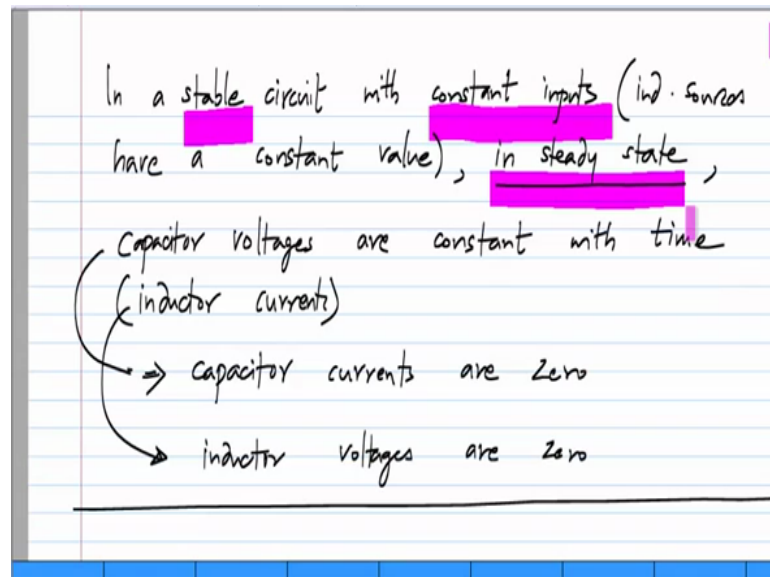 In a stable circuit with constant inputs (ind. sources
have a constant value), in steady state,
Capacitor voltages are constant with time
(inductor currents)
⇒ Capacitor currents are zero
inductor voltages are zero